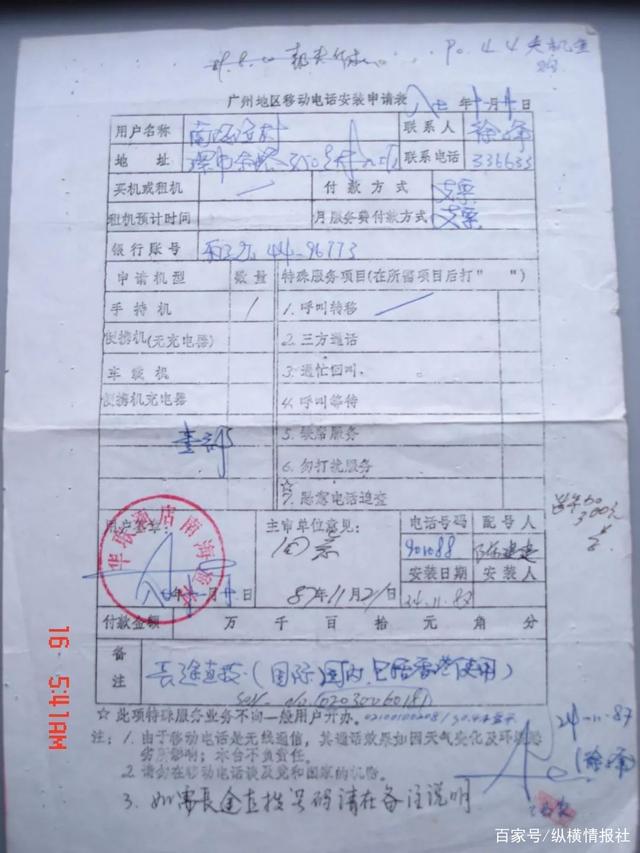 广州地区移动电话安装申请表 八七年 月 日
用户名称
联系人 徐峰
地址
联系电话 336635
买机或租机
付款方式 支票
租机预计时间
月服务费付款方式 支票
银行账号 44-96773
申请机型 数量 特殊服务项目(在所需项目后打" ")
手持机 1 1.呼叫转移
便携机(无充电器) 2.三方通话
车载机 3.遇忙回叫.
便携机充电器 4.呼叫等待
5.缺席服务
6.勿打扰服务
7.恶意电话追查
用户签字:
主审单位意见:
电话号码 配号人
同意
901088
安装日期 安装人
87年11月21日
24.11.87
华联酒店南海渔村
付款金额 万 千 百 拾 元 角 分
备注 长途直拨(国际国内,包括香港使用)
☆此项特殊服务业务不向一般用户开办.
24-11-87
(徐峰)
注:1.由于移动电话是无线通信,其通话效果如因天气变化及环境恶
劣所影响;本台不负责任.
2.请勿在移动电话谈及党和国家的机密.
3.如需长途直拨号码请在备注说明
16 5:41AM
百家号/纵横情报社